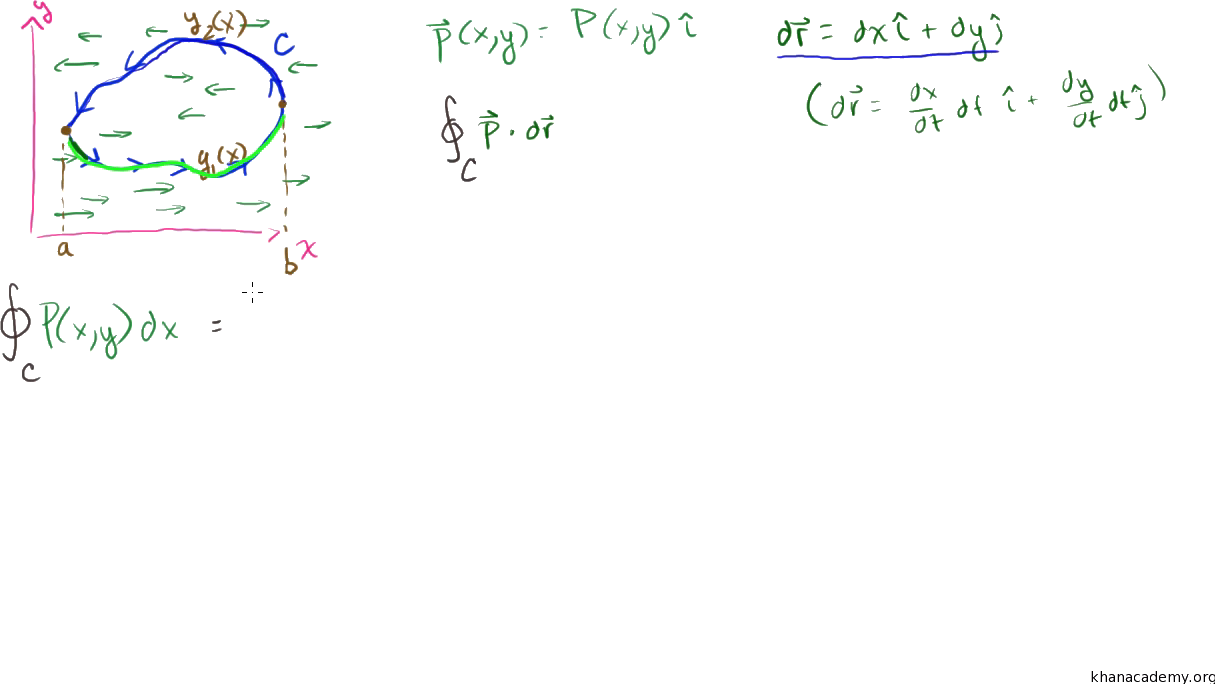 y
y₂(x)
C
y₁(x)
a
b
x
P⃗(x,y) = P(x,y) î
∮_C P⃗ · dr⃗
dr⃗ = dx î + dy ĵ
(dr⃗ = dx/dt dt î + dy/dt dt ĵ)
∮_C P(x,y) dx =
khanacademy.org